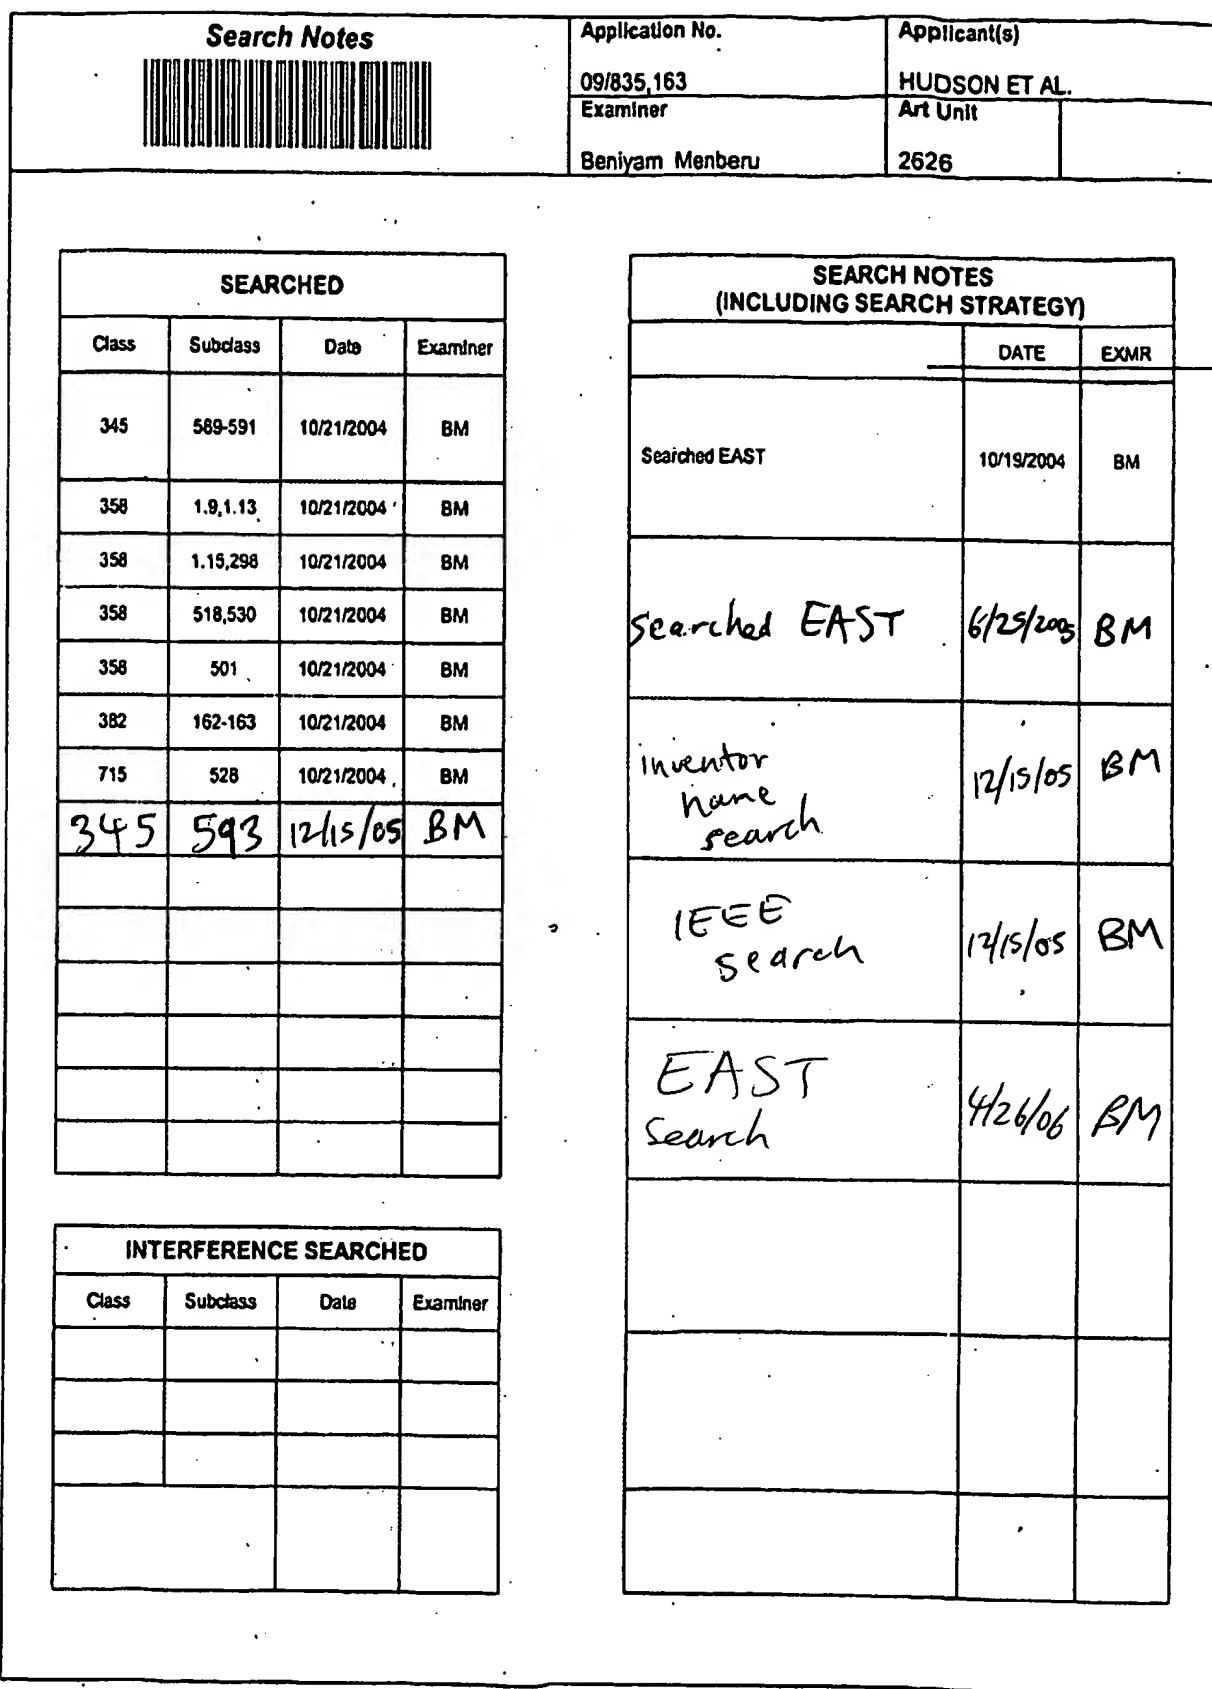 Search Notes
Application No.
Applicant(s)
09/835,163
HUDSON ET AL.
Examiner
Art Unit
Beniyam Menberu
2626
SEARCHED
Class Subclass Date Examiner
345 589-591 10/21/2004 BM
358 1.9,1.13 10/21/2004 BM
358 1.15,298 10/21/2004 BM
358 518,530 10/21/2004 BM
358 501 10/21/2004 BM
382 162-163 10/21/2004 BM
715 528 10/21/2004 BM
345 593 12/15/05 BM
INTERFERENCE SEARCHED
Class Subclass Date Examiner
SEARCH NOTES
(INCLUDING SEARCH STRATEGY)
DATE EXMR
Searched EAST 10/19/2004 BM
searched EAST 6/25/2005 BM
inventor
name
search 12/15/05 BM
IEEE
search 12/15/05 BM
EAST
search 4/26/06 BM